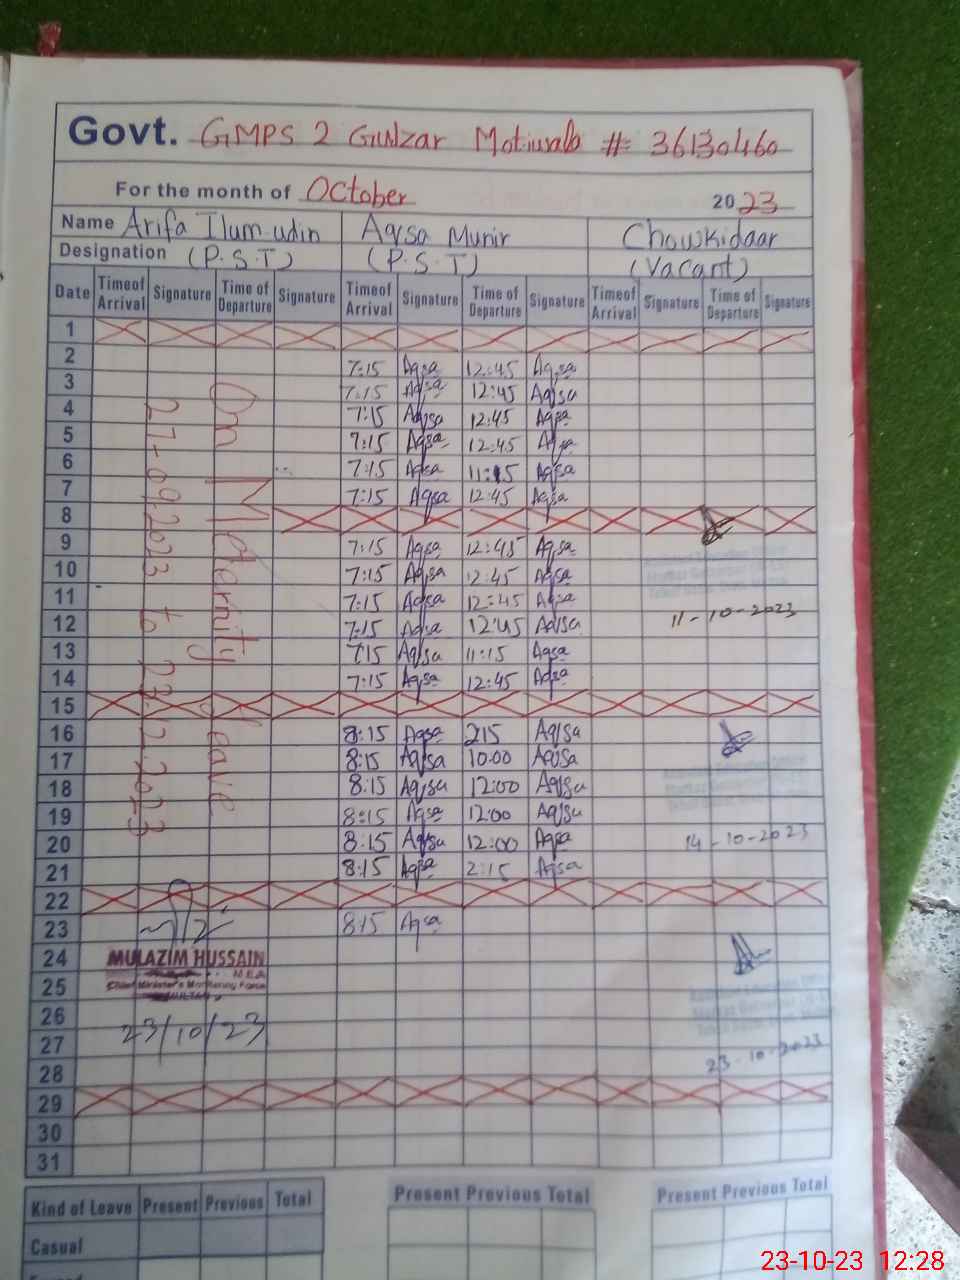 Govt. GMPS 2 Gulzar Motiwala # 36130460
For the month of October 2023
Name Arifa Ilum-udin Aqsa Munir Chowkidaar
Designation (P.S.T) (P.S.T) (Vacant)
Date Timeof Arrival Signature Time of Departure Signature Timeof Arrival Signature Time of Departure Signature Timeof Arrival Signature Time of Departure Signature
1
2 7:15 Aqsa 12:45 Aqsa
3 7:15 Aqsa 12:45 Aqsa
4 7:15 Aqsa 12:45 Aqsa
5 7:15 Aqsa 12:45 Aqsa
6 7:15 Aqsa 11:15 Aqsa
7 7:15 Aqsa 12:45 Aqsa
8
9 7:15 Aqsa 12:45 Aqsa
10 7:15 Aqsa 12:45 Aqsa
11 7:15 Aqsa 12:45 Aqsa
12 7:15 Aqsa 12:45 Aqsa 11-10-2023
13 7:15 Aqsa 11:15 Aqsa
14 7:15 Aqsa 12:45 Aqsa
15
16 8:15 Aqsa 2:15 Aqsa
17 8:15 Aqsa 10:00 Aqsa
18 8:15 Aqsa 12:00 Aqsa
19 8:15 Aqsa 12:00 Aqsa
20 8:15 Aqsa 12:00 Aqsa 14-10-2023
21 8:15 Aqsa 2:15 Aqsa
22
23 8:15 Aqsa
24
25
26
27
28
29
30
31
On Maternity Leave
27-09.2023 to 23.12.2023
MULAZIM HUSSAIN
M.E.A
Chief Minister's Monitoring Force
MULTAN
23/10/23
23-10-2023
Kind of Leave Present Previous Total Present Previous Total Present Previous Total
Casual
23-10-23 12:28